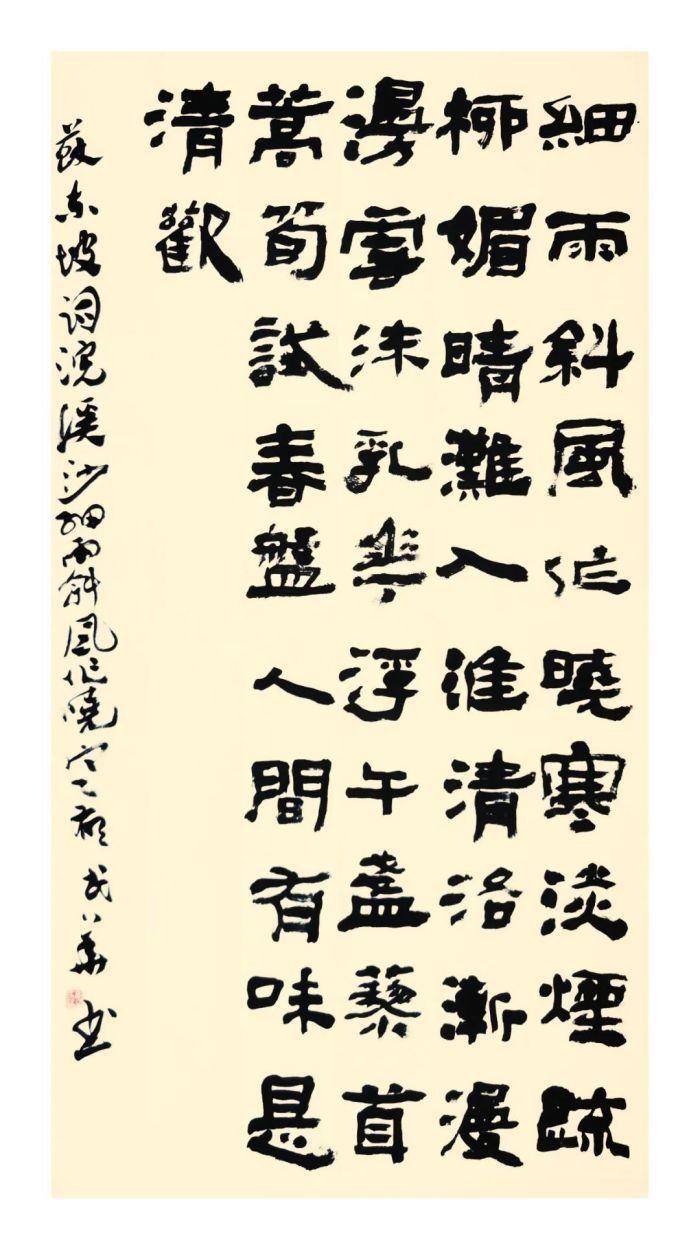 細雨斜風作曉寒淡煙疏
柳媚晴灘入淮清洛漸漫
漫雪沫乳華浮午盞蓼茸
蒿筍試春盤人間有味是
清歡
蘇東坡詞浣溪沙細雨斜風作曉寒 书